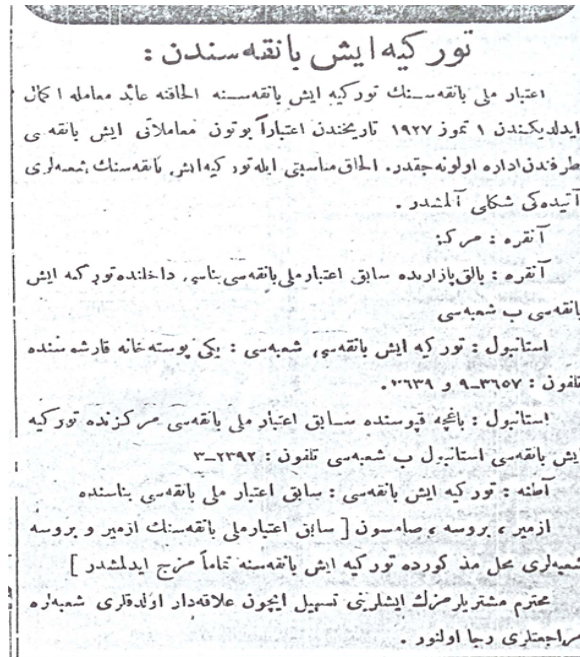 توركيه ايش بانقه سندن :
اعتبار ملى بانقه سنك توركيه ايش بانقه سنه الحاقنه عائد معامله اكمال
ايدلديكندن ١ تموز ١٩٢٧ تاريخندن اعتباراً بوتون معاملاتى ايش بانقه سى
طرفندن اداره اولونه جقدر. الحاق مناسبتى ايله توركيه ايش بانقه سنك شعبه لرى
آتيده كى شكلى آلمشدر .
آنقره : مركز
آنقره : بالق بازارنده سابق اعتبار ملى بانقه سى بناسى داخلنده توركيه ايش
بانقه سى ب شعبه سى
استانبول : توركيه ايش بانقه سى شعبه سى : يكى پوسته خانه قارشه سنده
تلفون : ٣٦٥٧–٩ و ٣٦٣٩.
استانبول : باغچه قپوسنده سابق اعتبار ملى بانقه سى مركزنده توركيه
ايش بانقه سى استانبول ب شعبه سى تلفون : ٢٣٩٢–٣
آطنه : توركيه ايش بانقه سى : سابق اعتبار ملى بانقه سى بناسنده
ازمير ، بروسه ، صامسون [ سابق اعتبار ملى بانقه سنك ازمير و بروسه
شعبه لرى محل مذكورده توركيه ايش بانقه سنه تماماً مزج ايدلمشدر ]
محترم مشتريلرمزك ايشلرينى تسهيل ايچون علاقه دار اولدقلرى شعبه لره
مراجعتلرى رجا اولنور .